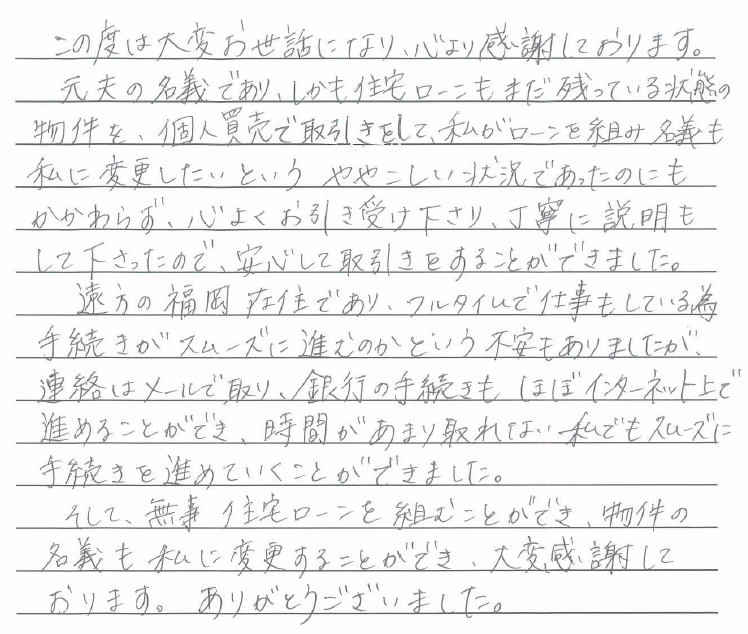 この度は大変お世話になり、心より感謝しております。
元夫の名義であり、しかも住宅ローンもまだ残っている状態の
物件を、個人買売で取引きをして、私がローンを組み名義も
私に変更したいという ややこしい状況であったのにも
かかわらず、心よくお引き受け下さり、丁寧に説明も
して下さったので、安心して取引きをすることができました。
遠方の福岡在住であり、フルタイムで仕事もしている為
手続きがスムーズに進むのかという不安もありましたが、
連絡はメールで取り、銀行の手続きも ほぼインターネット上で
進めることができ、時間があまり取れない私でもスムーズに
手続きを進めていくことができました。
そして、無事 住宅ローンを組むことができ、物件の
名義も私に変更することができ、大変感謝して
おります。ありがとうございました。